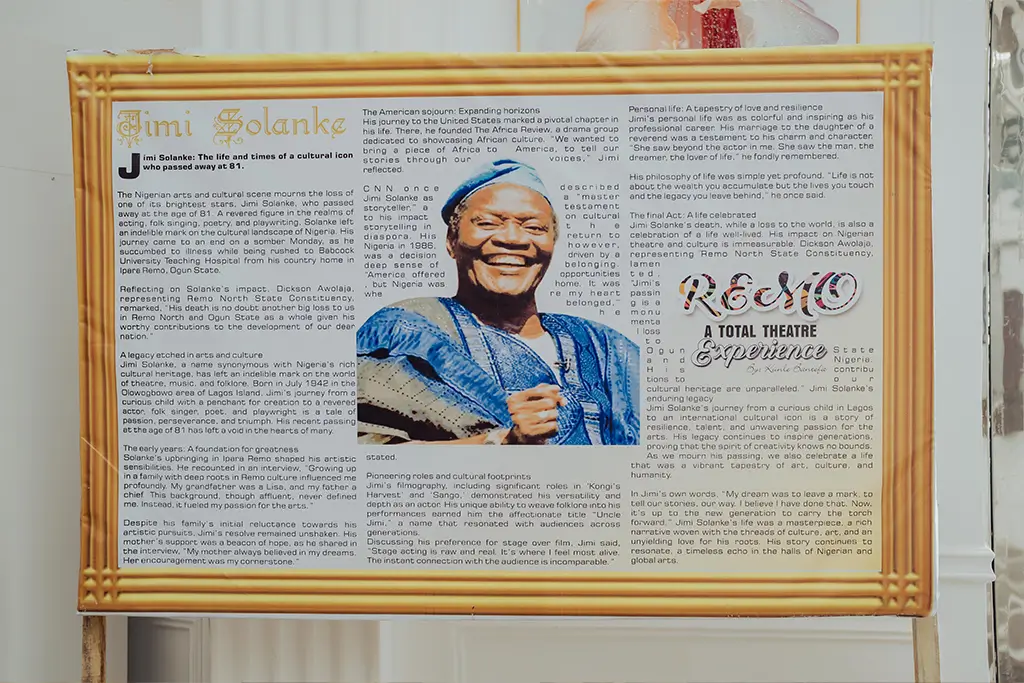 Jimi Solanke
Jimi Solanke: The life and times of a cultural icon
who passed away at 81.
The Nigerian arts and cultural scene mourns the loss of
one of its brightest stars, Jimi Solanke, who passed
away at the age of 81. A revered figure in the realms of
acting, folk singing, poetry, and playwriting, Solanke left
an indelible mark on the cultural landscape of Nigeria. His
journey came to an end on a somber Monday, as he
succumbed to illness while being rushed to Babcock
University Teaching Hospital from his country home in
Ipara Remo, Ogun State.
Reflecting on Solanke's impact, Dickson Awolaja,
representing Remo North State Constituency,
remarked, "His death is no doubt another big loss to us
in Remo North and Ogun State as a whole given his
worthy contributions to the development of our dear
nation."
A legacy etched in arts and culture
Jimi Solanke, a name synonymous with Nigeria's rich
cultural heritage, has left an indelible mark on the world
of theatre, music, and folklore. Born in July 1942 in the
Olowogbowo area of Lagos Island, Jimi's journey from a
curious child with a penchant for creation to a revered
actor, folk singer, poet, and playwright is a tale of
passion, perseverance, and triumph. His recent passing
at the age of 81 has left a void in the hearts of many.
The early years: A foundation for greatness
Solanke's upbringing in Ipara Remo shaped his artistic
sensibilities. He recounted in an interview, "Growing up
in a family with deep roots in Remo culture influenced me
profoundly. My grandfather was a Lisa, and my father a
chief. This background, though affluent, never defined
me. Instead, it fueled my passion for the arts."
Despite his family's initial reluctance towards his
artistic pursuits, Jimi's resolve remained unshaken. His
mother's support was a beacon of hope, as he shared in
the interview, "My mother always believed in my dreams.
Her encouragement was my cornerstone."
The American sojourn: Expanding horizons
His journey to the United States marked a pivotal chapter in
his life. There, he founded The Africa Review, a drama group
dedicated to showcasing African culture. "We wanted to
bring a piece of Africa to America, to tell our
stories through our voices," Jimi
reflected.
CNN once described
Jimi Solanke as a "master
storyteller," a testament
to his impact on cultural
storytelling in the
diaspora. His return to
Nigeria in 1986, however,
was a decision driven by a
deep sense of belonging.
"America offered opportunities
, but Nigeria was home. It was
whe re my heart
belonged,"
he
stated.
Pioneering roles and cultural footprints
Jimi's filmography, including significant roles in 'Kongi's
Harvest' and 'Sango,' demonstrated his versatility and
depth as an actor. His unique ability to weave folklore into his
performances earned him the affectionate title "Uncle
Jimi," a name that resonated with audiences across
generations.
Discussing his preference for stage over film, Jimi said,
"Stage acting is raw and real. It's where I feel most alive.
The instant connection with the audience is incomparable."
Personal life: A tapestry of love and resilience
Jimi's personal life was as colorful and inspiring as his
professional career. His marriage to the daughter of a
reverend was a testament to his charm and character.
"She saw beyond the actor in me. She saw the man, the
dreamer, the lover of life," he fondly remembered.
His philosophy of life was simple yet profound. "Life is not
about the wealth you accumulate but the lives you touch
and the legacy you leave behind," he once said.
The final Act: A life celebrated
Jimi Solanke's death, while a loss to the world, is also a
celebration of a life well-lived. His impact on Nigerian
theatre and culture is immeasurable. Dickson Awolaja,
representing Remo North State Constituency,
lamen
ted,
"Jimi's
passin
g is a
monu
menta
l loss
to
Ogun State
and Nigeria.
His contribu
tions to our
cultural heritage are unparalleled." Jimi Solanke's
enduring legacy
Jimi Solanke's journey from a curious child in Lagos
to an international cultural icon is a story of
resilience, talent, and unwavering passion for the
arts. His legacy continues to inspire generations,
proving that the spirit of creativity knows no bounds.
As we mourn his passing, we also celebrate a life
that was a vibrant tapestry of art, culture, and
humanity.
In Jimi's own words, "My dream was to leave a mark, to
tell our stories, our way. I believe I have done that. Now,
it's up to the new generation to carry the torch
forward." Jimi Solanke's life was a masterpiece, a rich
narrative woven with the threads of culture, art, and an
unyielding love for his roots. His story continues to
resonate, a timeless echo in the halls of Nigerian and
global arts.
REMO
A TOTAL THEATRE
Experience
By: Kunle